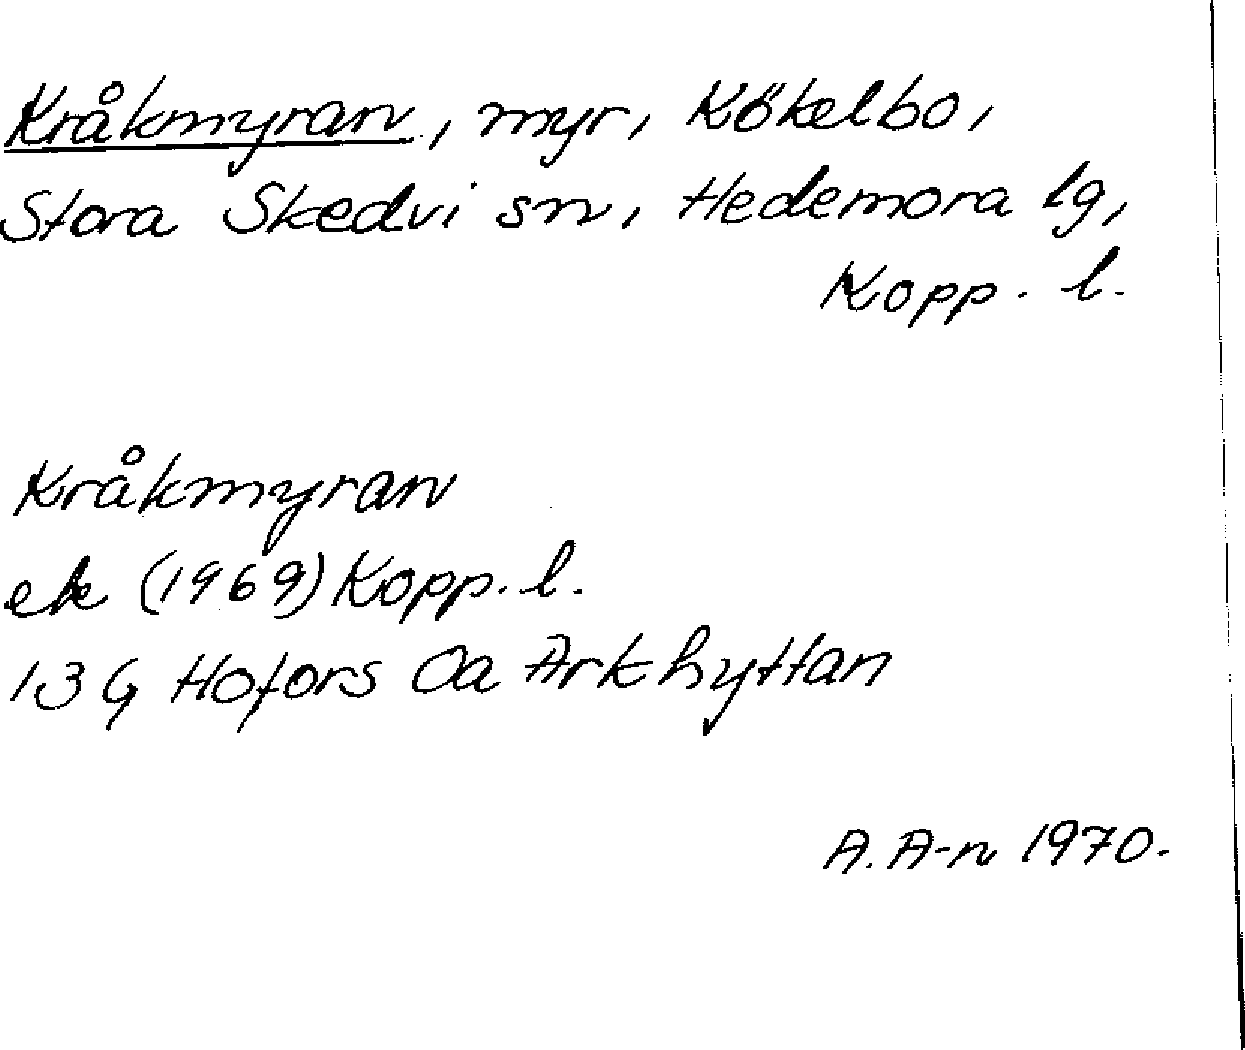 Kråkmyran, myr, Kökelbo,
Stora Skedvi sn, Hedemora lg,
Kopp. l.
Kråkmyran
ek (1969) Kopp. l.
13 G Hofors 0a Arkhyttan
A. A-n 1970.